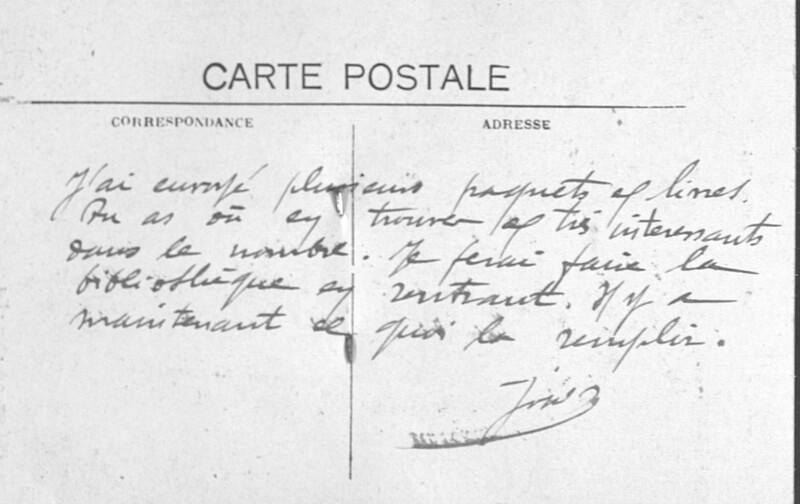 CARTE POSTALE
CORRESPONDANCE
ADRESSE
J'ai envoyé plusieurs paquets de livres.
Tu as dû en trouver de très interessants
dans le nombre. Je ferai faire la
bibliothèque en rentrant. Il y a
maintenant de quoi la remplir.